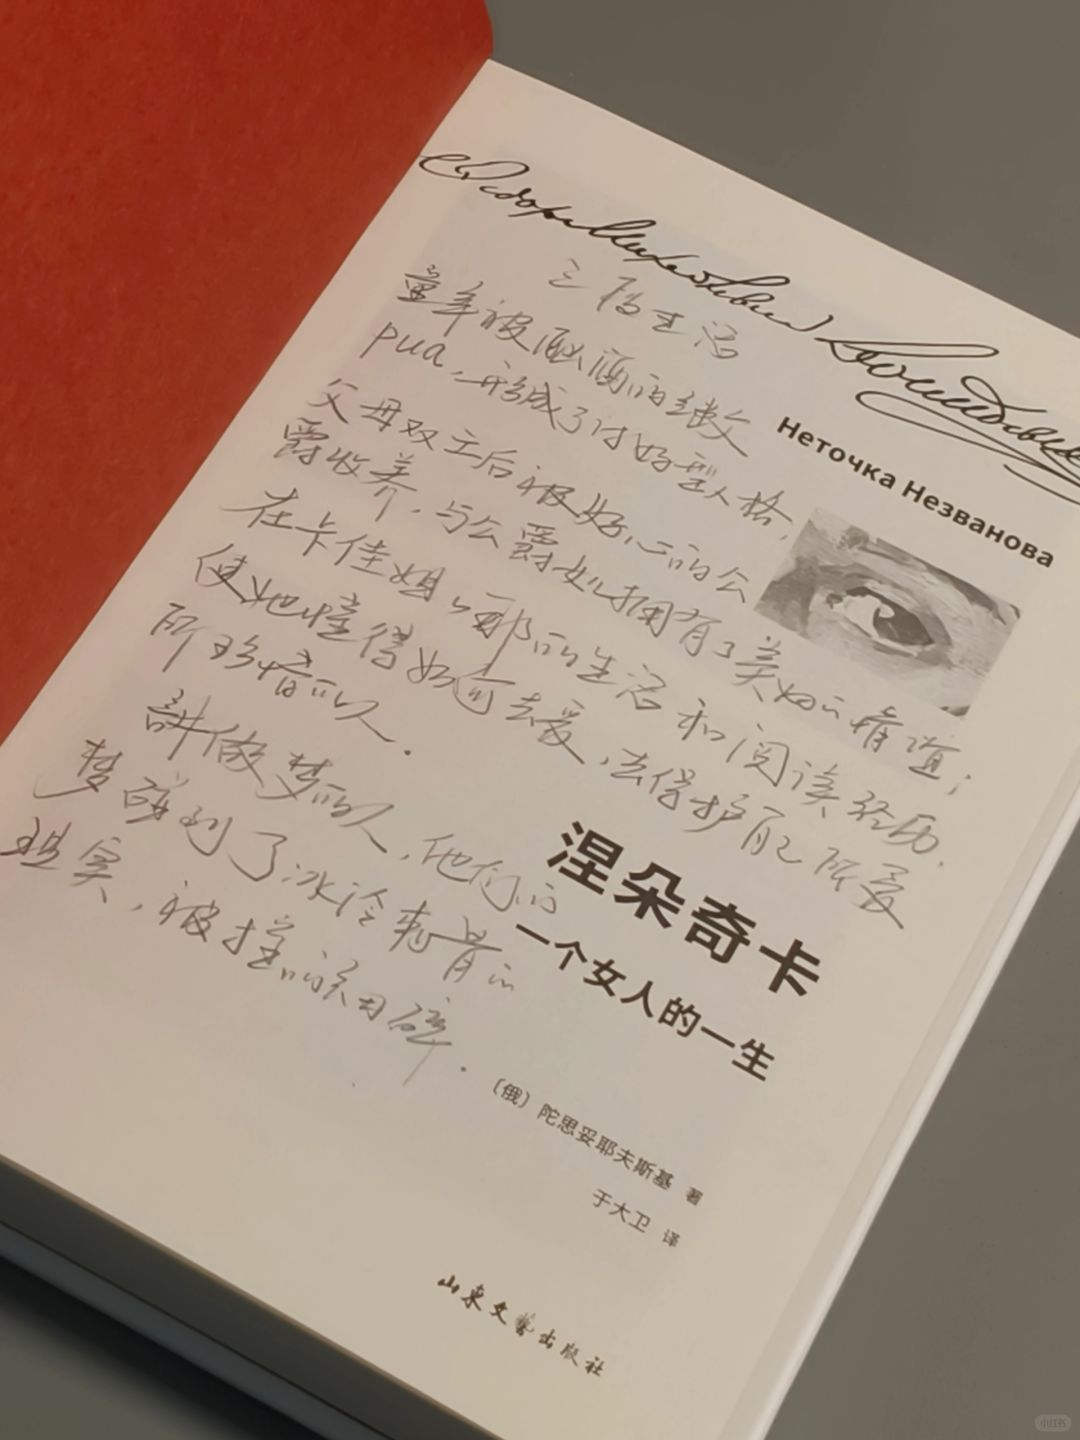 Неточка Незванова
三段生活
童年被酗酒的继父
pua,形成了讨好型人格,
父母双亡后被好心的公
爵收养,与公爵女儿拥有了美好的情谊;
在卡佳姐姐那的生活和阅读经历,
使她懂得如何去爱,去保护自己所爱
所珍惜的人。
讲做梦的人,他们的
梦碰到了冰冷刺骨的
现实,被撞的
涅朵奇卡
一个女人的一生
〔俄〕陀思妥耶夫斯基 著
于大卫 译
山东文艺出版社
小红书